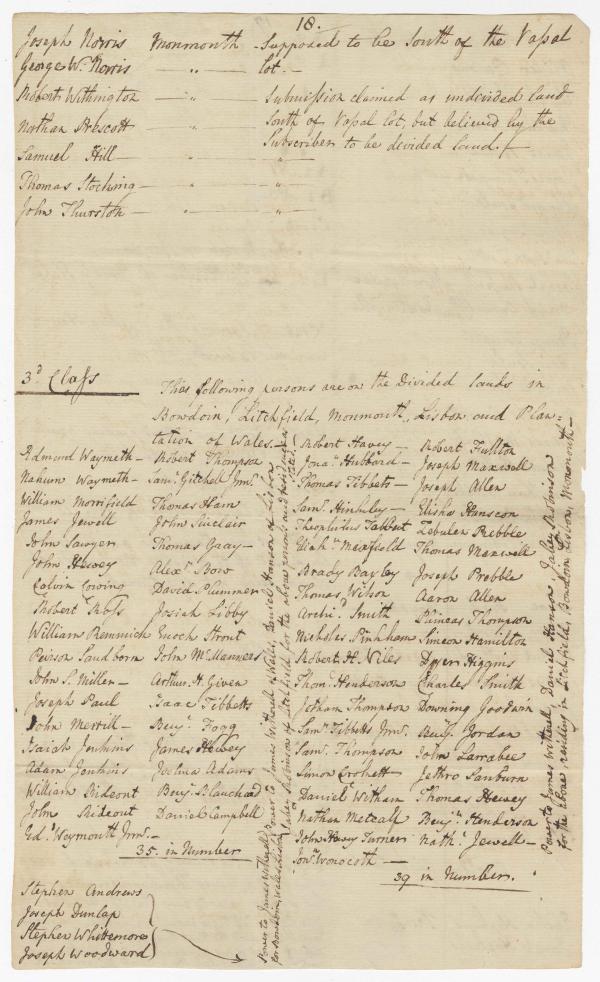 18.
Joseph Norris Monmouth - Supposed to be South of the Vassal
George W. Norris — " — Lot. —
Robert Withington — " — Submission claimed as undivided land
Nathan Prescott — " — South of Vassal Lot, but believed by the
Samuel Hill — " — Subscriber to be divided land.
Thomas Stocking — " — " —
John Thurston — " — " —
3d Class
The following persons are on the Divided lands in
Bowdoin, Litchfield, Monmouth, Lisbon and Plan-
tation of Wales. —
Edmond Waymeth —
Nahum Waymeth —
William Morrifield
James Jewell
John Sawyer
John Hewey
Calvin Cowing
Robert Ross
William Remmick
Peirson Sandborn
John S. Miller —
Joseph Paul
John Merrill —
Isaiah Jenkins
Adam Jenkins
William Rideout
John Rideout
Ed. Weymouth Jnr. —
Robert Thompson
Saml. Gitchell Jnr.
Thomas Ham
John Sinclair
Thomas Gray —
Alexr. Bow
David Plummer
Josiah Libby
Enoch Strout
John McManners
Arthur H. Given
Isaac Tibbetts
Benj. Fogg
James Hewey
Joelma Adams
Benj. Blanchard
Daniel Campbell
35. in Number
Robert Havey —
Jona. Hubbard —
Thomas Tibbetts —
Saml. Hinkley —
Theophilus Tabbert
Brady Bayley
Thomas Wilson
Archd. Smith
Nicholas Pinkham
Robert H. Niles
Thoms. Henderson
Jotham Thompson
Saml. Tibbetts Jnr.
Saml. Thompson
Simon Crockett
Daniel Witham
Nathan Metcalf
John Havy Turner
Jona. Woodcoth —
Robert Fullton
Joseph Maxwell
Joseph Allen
Elisha Hanscon
Zebulen Prebble
Thomas Maxwell
Joseph Prebble
Aaron Allen
Phineas Thompson
Simeon Hamilton
Dyer Higgins
Charles Smith
Downing Goodwin
Benj. Jordan
John Larrabee
Jethro Sanburn
Thomas Hewey
Benj. Henderson
Nathl. Jewell —
39 in Number.
Stephen Andrews
Joseph Dunlap
Stephen Whittemore
Joseph Woodward
Power to James Witherell of Wales, Daniel Hanson of Lisbon
Power to James Witherell, Daniel Hanson, Jabez Robinson
for the above, residing in Litchfield, Bowdoin, Lisbon, Monmouth —